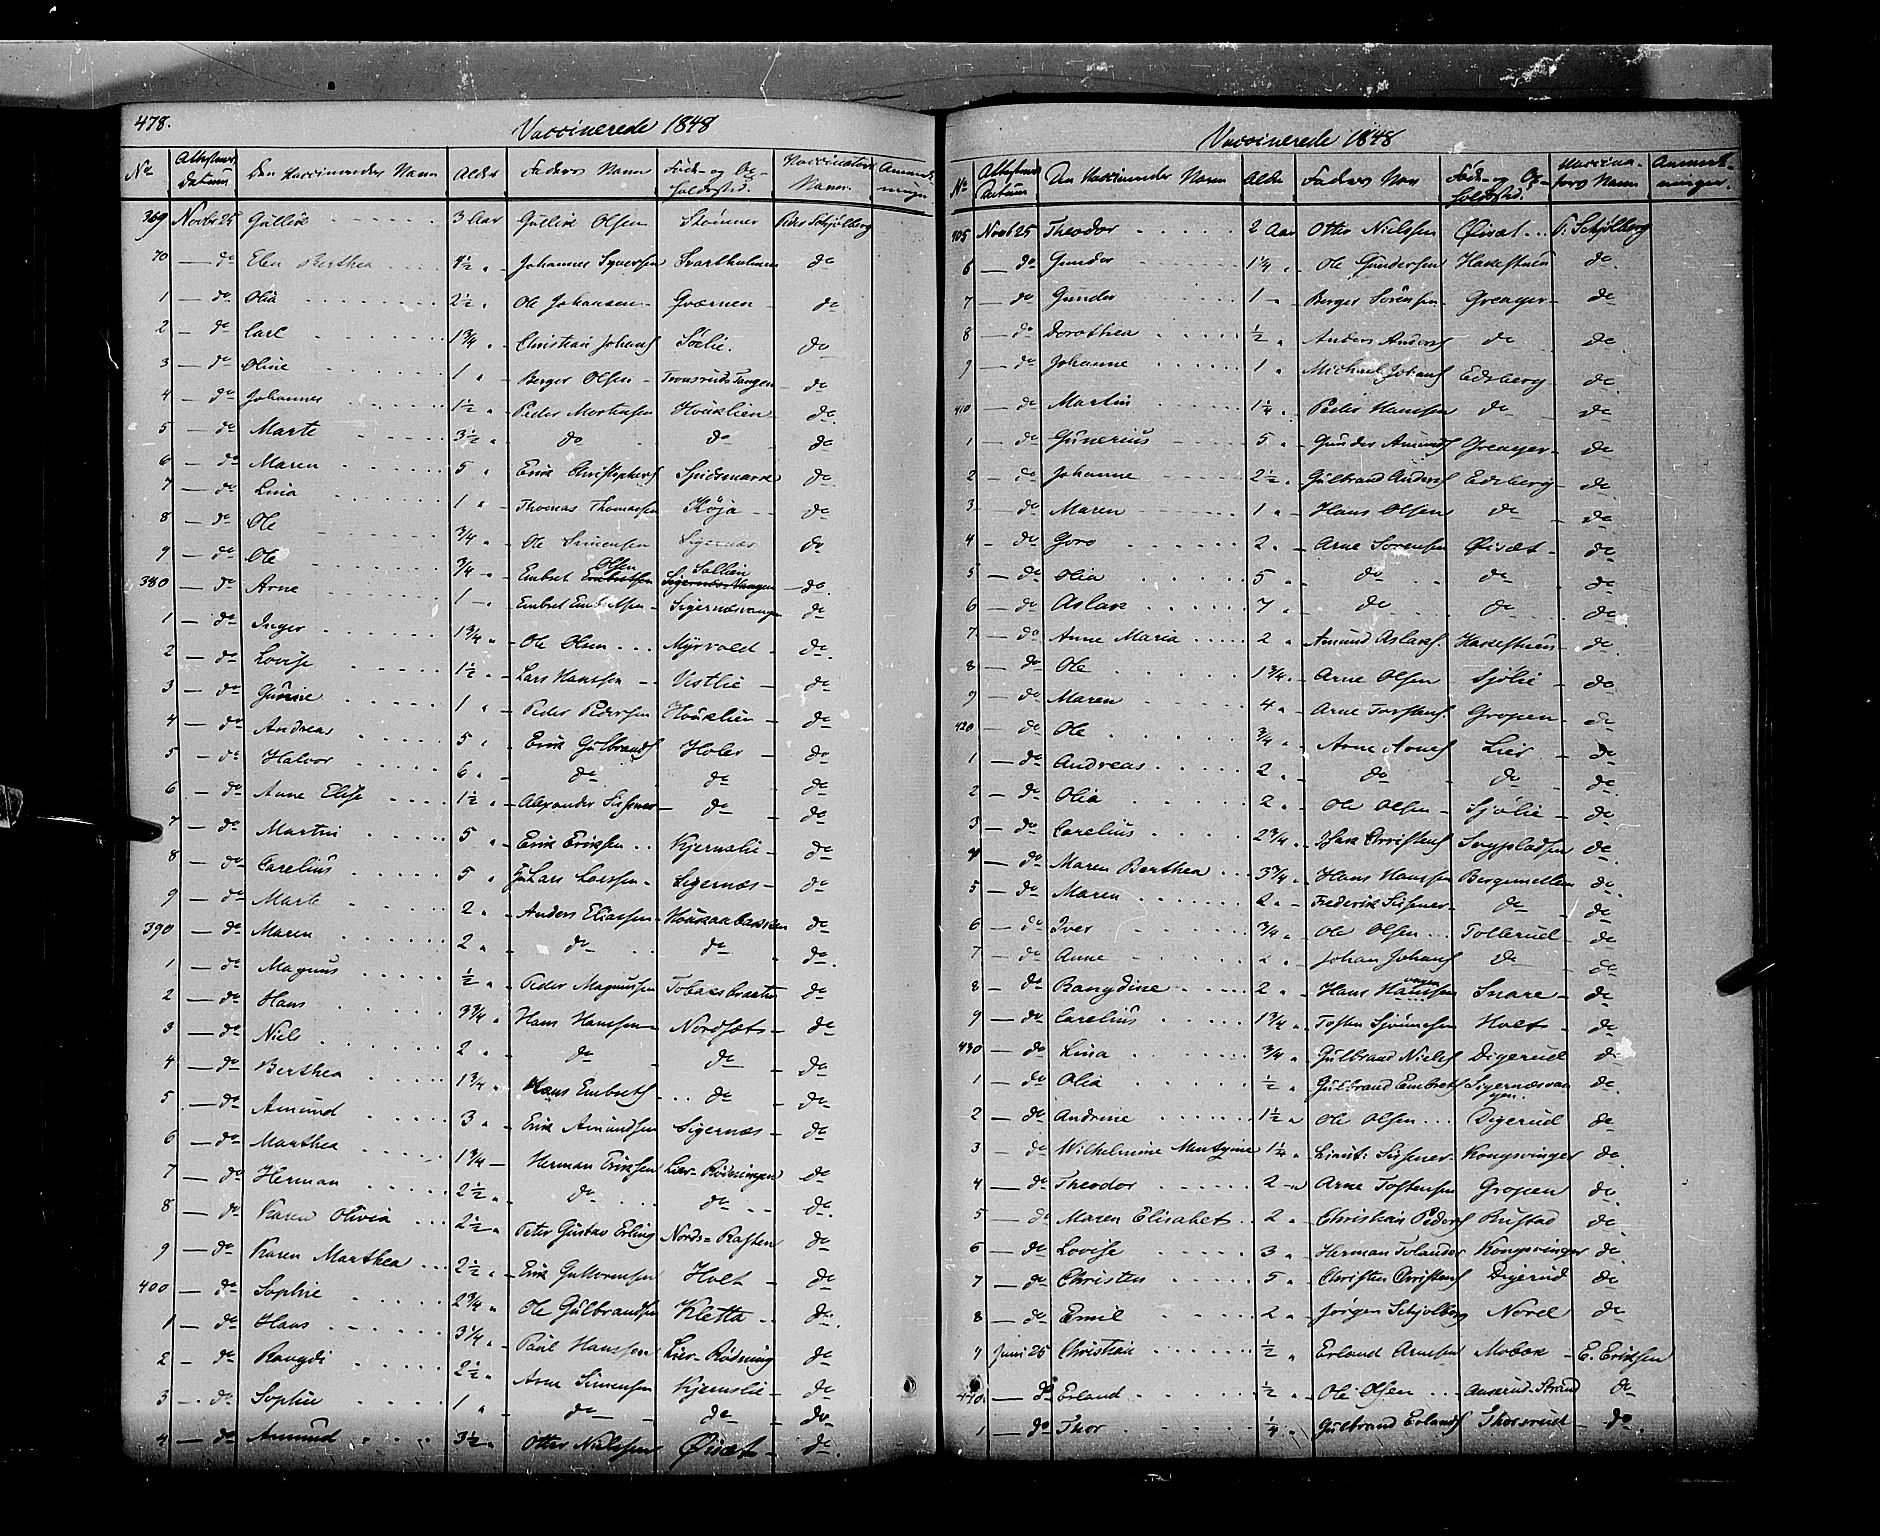 478.
Vaccinerede 1848
No Attestens Datum Den Vaccineredes Navn Alder Faders Navn Føde- og Opholdssted. Vaccinateurs Navn. Anmærkninger
369 Novbr 25 Gullik 3 Aar Gullik Olsen Strømner Peder Schjølberg
70 — do Elen Berthea 4½ " Johannes Syversen Svartholmen do
1 — do Olia 2½ " Ole Johansen Gværnen do
2 — do Carl 1¾ " Christian Johans Sørlie. do
3 — do Oline 1 " Berger Olsen Tangen do
4 — do Johannes 1½ " Peder Mortensen Houklien do
5 — do Marte 3½ " do do do
6 — do Maren 5 " Erik Christophers do
7 — do Lina 1 " Thomas Thomassen Køja do
8 — do Ole ¾ " Ole Simensen Sigernæs do
9 — do Ole ¾ " Embret Olsen Sollien do
380 — do Arne 1 — Embret Embretsen Sigernæsvangen do
1 — do Inger 1¾ " Ole Olsen Myrvold do
2 — do Lovise 1½ " Lars Hanssen Vestlie do
3 — do Gunne 1 " Peder Pedersen Houklien do
4 — do Andreas 5 " Erik Gulbrands Holer do
5 — do Halvor 6 " do do do
6 — do Anne Elise 1½ " Alexander do do
7 — do Martin 5 " Erik Eriksen Kjernslie do
8 — do Carelius 5 " Lars Larssen Sigernæs do
9 — do Marte 2 " Anders Eliassen Houkaabakken do
390 — do Maren 2 " do do do
1 — do Magnus ½ " Peder Magnussen Tobaksbraaten do
2 — do Hans 3¾ " Hans Hanssen Nordsæts do
3 — do Niels 2 " do do do
4 — do Berthea 1¾ " Hans Embrets do do
5 — do Amund 3 " Erik Amundsen Sigernæs do
6 — do Marthea 1¾ — Herman Eriksen Lier-Rødningen do
7 — do Herman 2½ " do do do
8 — do Karen Olivia 2½ " Peter Gustav Erling Nords-Rasten do
9 — do Karen Marthea 2½ " Erik Guttormsen Holt do
400 — do Sophie 2¾ " Ole Gulbrandsen Kletta do
1 — do Hans 3¼ " Paul Hanssen Lier-Rødning do
2 — do Rangdi 2½ " Arne Simensen Kjernslie do
3 — do Sophie 1 " do do do
4 — do Amund 3½ " Otter Nielssen Øisæt do.
Vaccinerede 1848
No Attestens Datum Den Vaccineredes Navn Alder Faders Navn Føde- og Opholdssted. Vaccinators Navn Anmærkninger.
405 Novb 25 Theodor 2 Aar Otter Nielssen Øisæt P. Schjølberg
6 — do Gunder 1¼ " Ole Gundersen Hakkestuen do
7 — do Gunder 1 " Berger Sørensen Greager do
8 — do Dorothea ½ " Anders Anders do do
9 — do Johanne 1 " Michael Johans Edsberg do
410 — do Martin 1¼ " Peder Hanssen do do
1 — do Gunerius 5 " Gunder Amunds Greager do
2 — do Johanne 2½ " Gulbrand Anders Edsberg do
3 — do Maren 1 " Hans Olsen do do
4 — do Goro 2 " Arne Sørensen Øisæt do
5 — do Olia 5 " do do do
6 — do Aslak 7 " do do do
7 — do Anne Maria 2 " Amund Aslaks. Hakkestuen do
8 — do Ole 1¾ " Arne Olsen Sjølie do
9 — do Maren 4 " Arne Torstens. Gropen do
420 — do Ole ¾ " Arne Arnes Lier do
1 — do Andreas 2 " do do do
2 — do Olia 2 " Ole Olsen Sjølie do
3 — do Carelius 2¾ " Christens do
4 — do Maren Berthea 3¾ " Hans Hanssen Bergemellem do
5 — do Maren 2 " Frederik do do
6 — do Iver ¾ " Ole Olsen Tollerud do
7 — do Anne 2 " Johan Johans do do
8 — do Rangdine 2 " Hans Hanssen Snare do
9 — do Carelius 1¾ " Tosten Holt do
430 — do Lina ¾ " Gulbrand Niels Digerud do
1 — do Olia ½ " Gulbrand Embrets Sigernæsvangen. do
2 — do Andrine 1½ " Ole Olsen Digerud do
3 — do Wilhelmine 1¼ " Lieut: Kongsvinger do
4 — do Theodor 2 " Arne Tostensen Gropen do
5 — do Maren Elisabet 2 " Christian Peders Rustad do
6 — do Lovise 3 " Herman Tolander Kongsvinger do
7 — do Christen 5 " Christen Christens Digerud do
8 — do Emil 2 " Jørgen Schjølberg Norel do
9 Juni 25 Christian ½ " Erland Arnesen Mobæk E. Eriksen
440 — do Erland ½ " Ole Olsen Aaserud-Strand do
1 — do Thor ¼ " Gulbrand Erlands Thorsrud do.